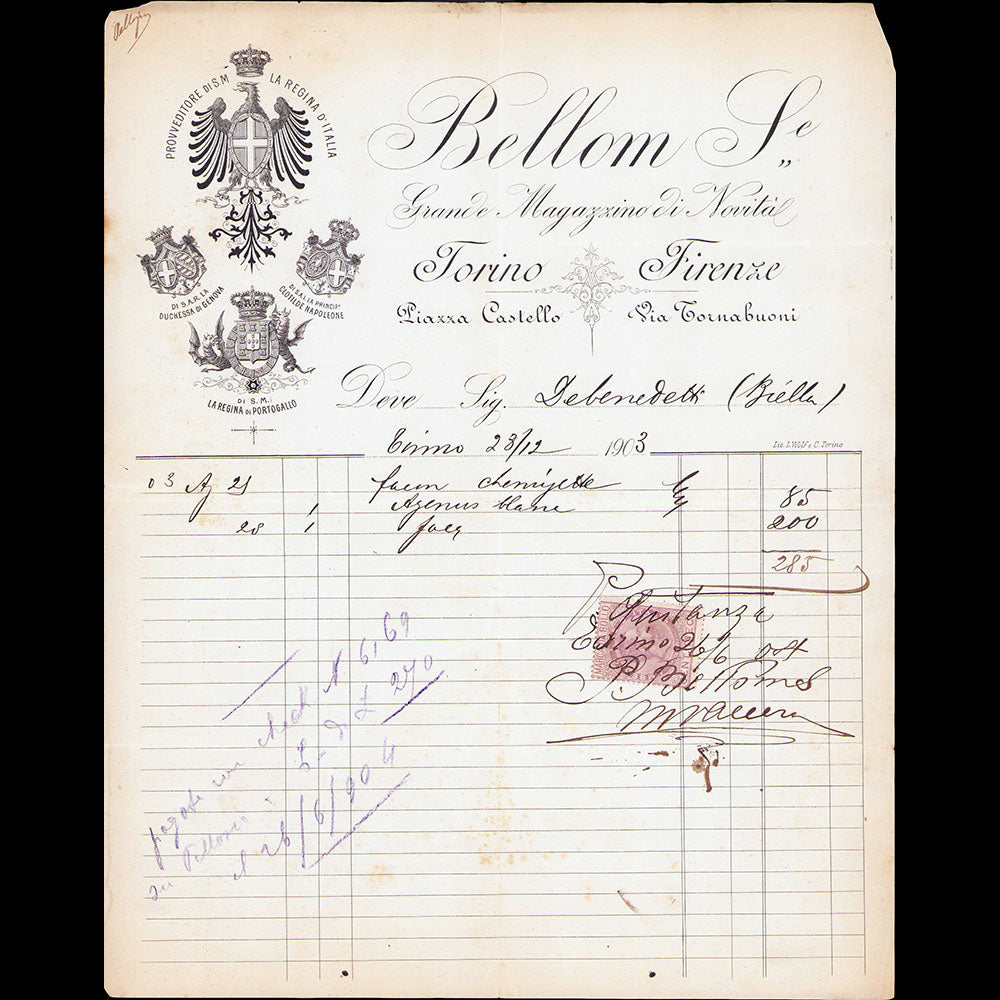 PROVVEDITORE DI S.M LA REGINA D'ITALIA
DI S.A.R. LA
DUCHESSA DI GENOVA
DI S.A.I. LA PRINCIPE
CLOTILDE NAPOLEONE
DI S.M.
LA REGINA DI PORTOGALLO
Bellom Se
Grande Magazzino di Novità
Torino Firenze
Piazza Castello Via Tornabuoni
Deve Sig. Debenedetti (Biella)
Torino 23/12 1903
Lit. L. Wolf e C. Torino
03 Ag 21 chemisette 85
1
28 1 200
285
MARCA DA BOLLO
Quitanza
Torino 26/6 04
P. Bellom
pagato con check N 6,69
270
26/6/904